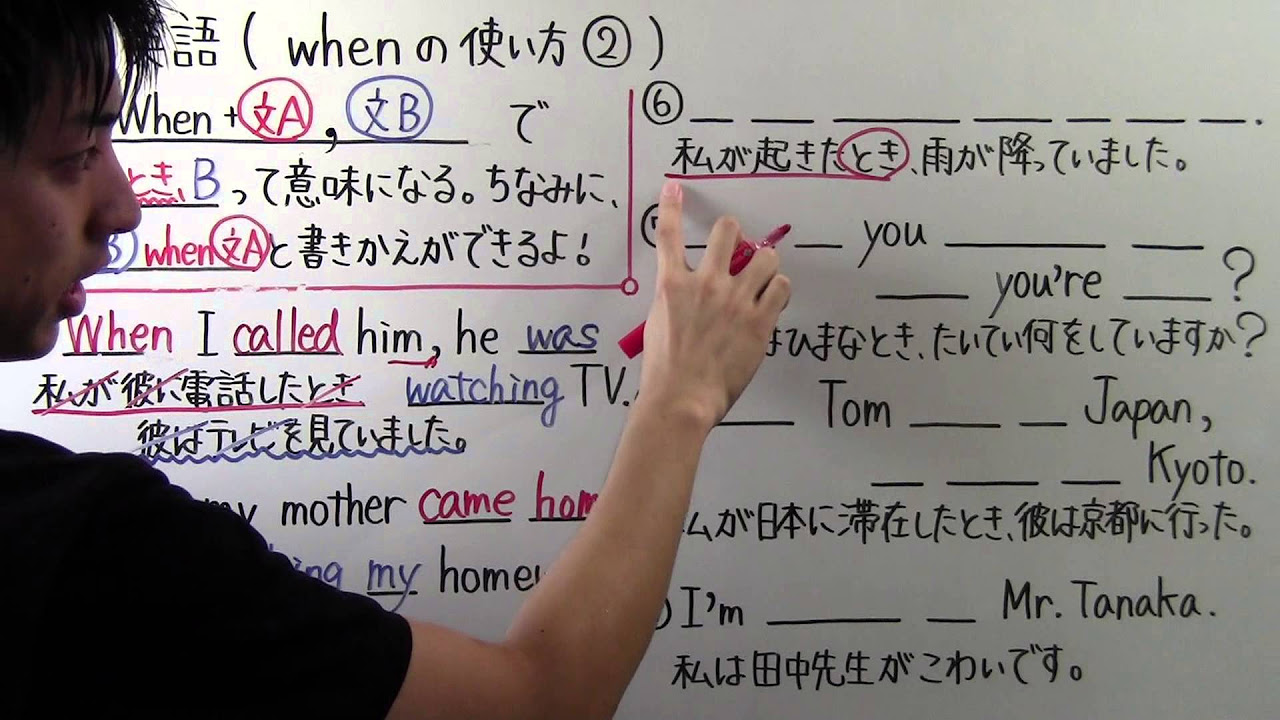 語 ( whenの使い方 ② )
When + 文A , 文B で
とき、Bって意味になる。ちなみに、
when文Aと書きかえができるよ!
When I called him, he was
私が彼に電話したとき watching TV.
彼はテレビを見ていました。
my mother came hom
ing my home
⑥ __ __ __ __ __ __ __.
私が起きたとき、雨が降っていました。
__ __ you __ __
__ you're __ ?
はひまなとき、たいてい何をしていますか?
__ Tom __ __ Japan,
__ __ __ Kyoto.
私が日本に滞在したとき、彼は京都に行った。
I'm __ __ Mr. Tanaka.
私は田中先生がこわいです。